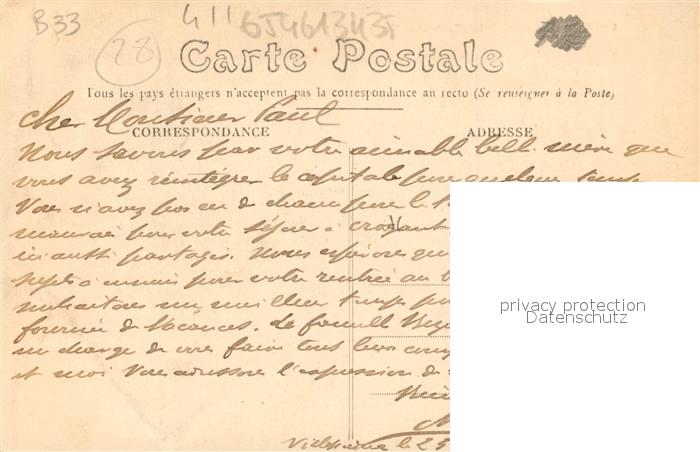 B33
28
411
654613435
Carte Postale
Tous les pays étrangers n'acceptent pas la correspondance au recto (Se renseigner à la Poste)
CORRESPONDANCE
ADRESSE
Cher Monsieur Paul
Nous savons par votre aimable belle-mère que
vous avez réintégrer la capitale pour quelque temps
Vous n'avez pas eu de chance pour le
mauvais pour votre séjour à
ici aussi partagés. Nous espérons que
pour votre rentrée au
souhaitons un meilleur temps
fournée de Vacances. La famille
me charge de vous faire tous leurs
et moi vous adressons l'expression de
le 25
privacy protection
Datenschutz